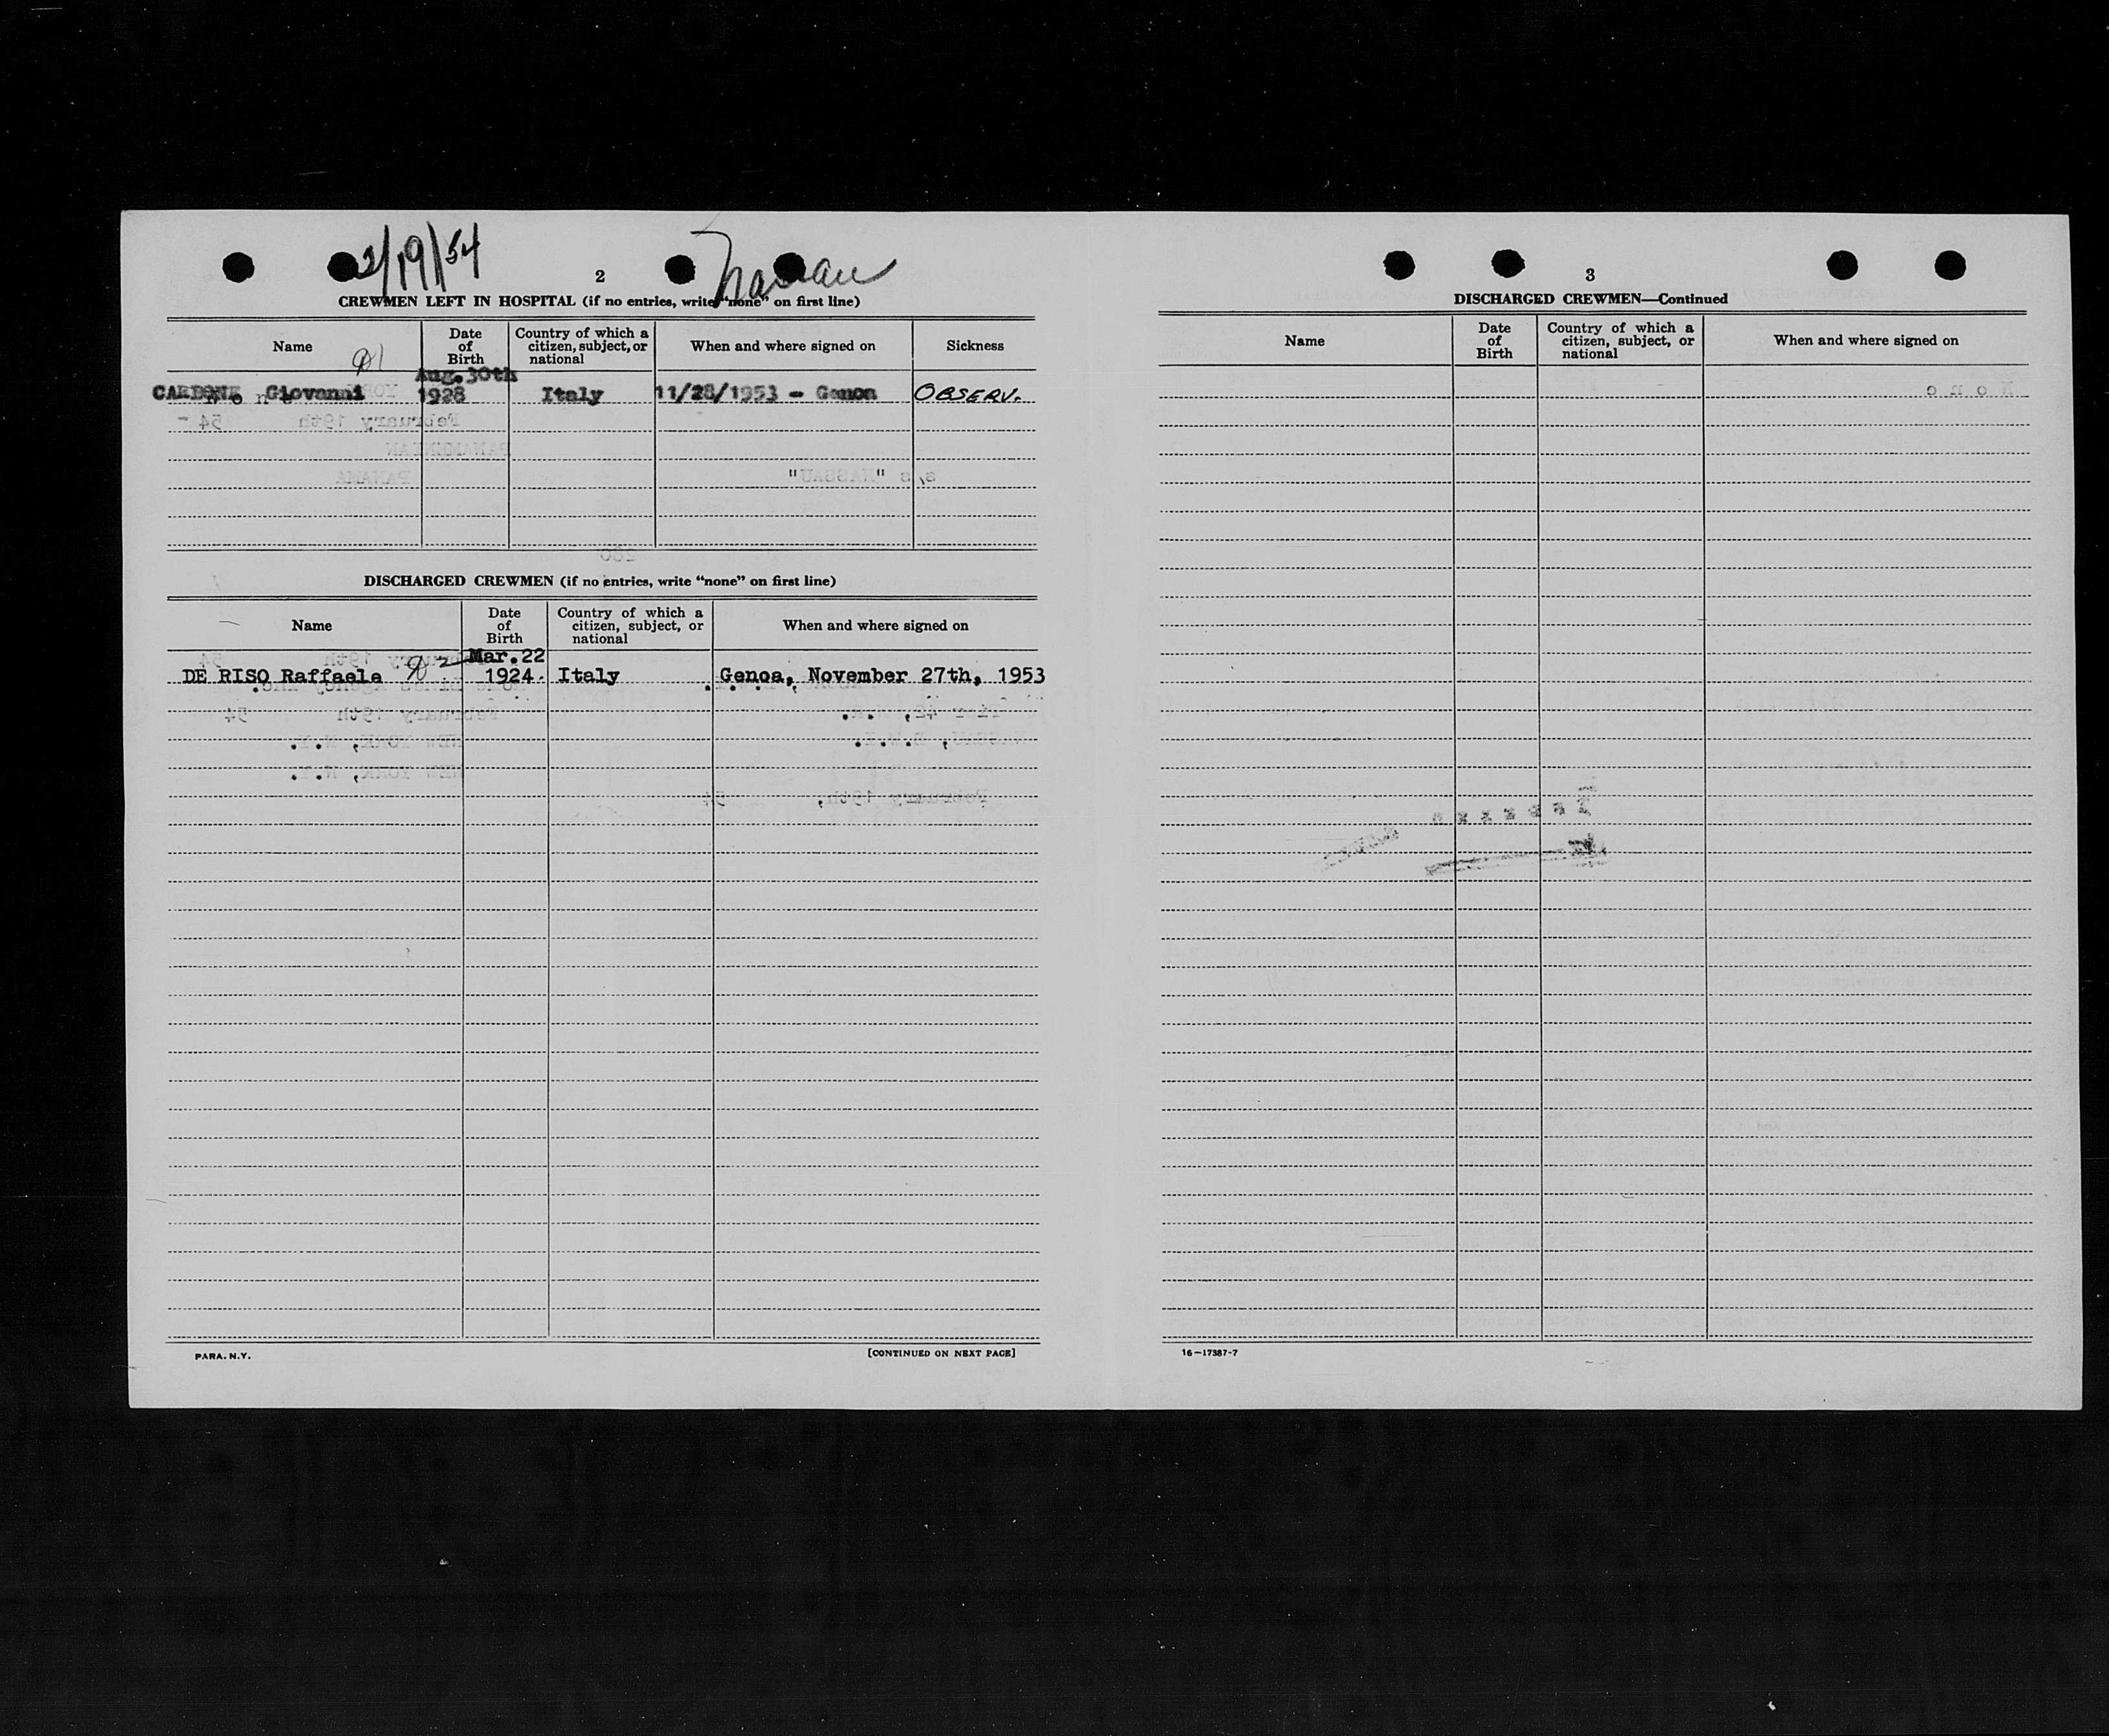 2/19/54
Nassau
2
CREWMEN LEFT IN HOSPITAL (if no entries, write "none" on first line)
Name
Date of Birth
Country of which a citizen, subject, or national
When and where signed on
Sickness
CARBONE Giovanni
Aug. 30th 1928
Italy
11/28/1953 - Genoa
OBSERV.
DISCHARGED CREWMEN (if no entries, write "none" on first line)
Name
Date of Birth
Country of which a citizen, subject, or national
When and where signed on
DE RISO Raffaele
Mar. 22 1924.
Italy
Genoa, November 27th, 1953
PARA. N.Y.
[CONTINUED ON NEXT PAGE]
3
DISCHARGED CREWMEN—Continued
Name
Date of Birth
Country of which a citizen, subject, or national
When and where signed on
16—17387-7